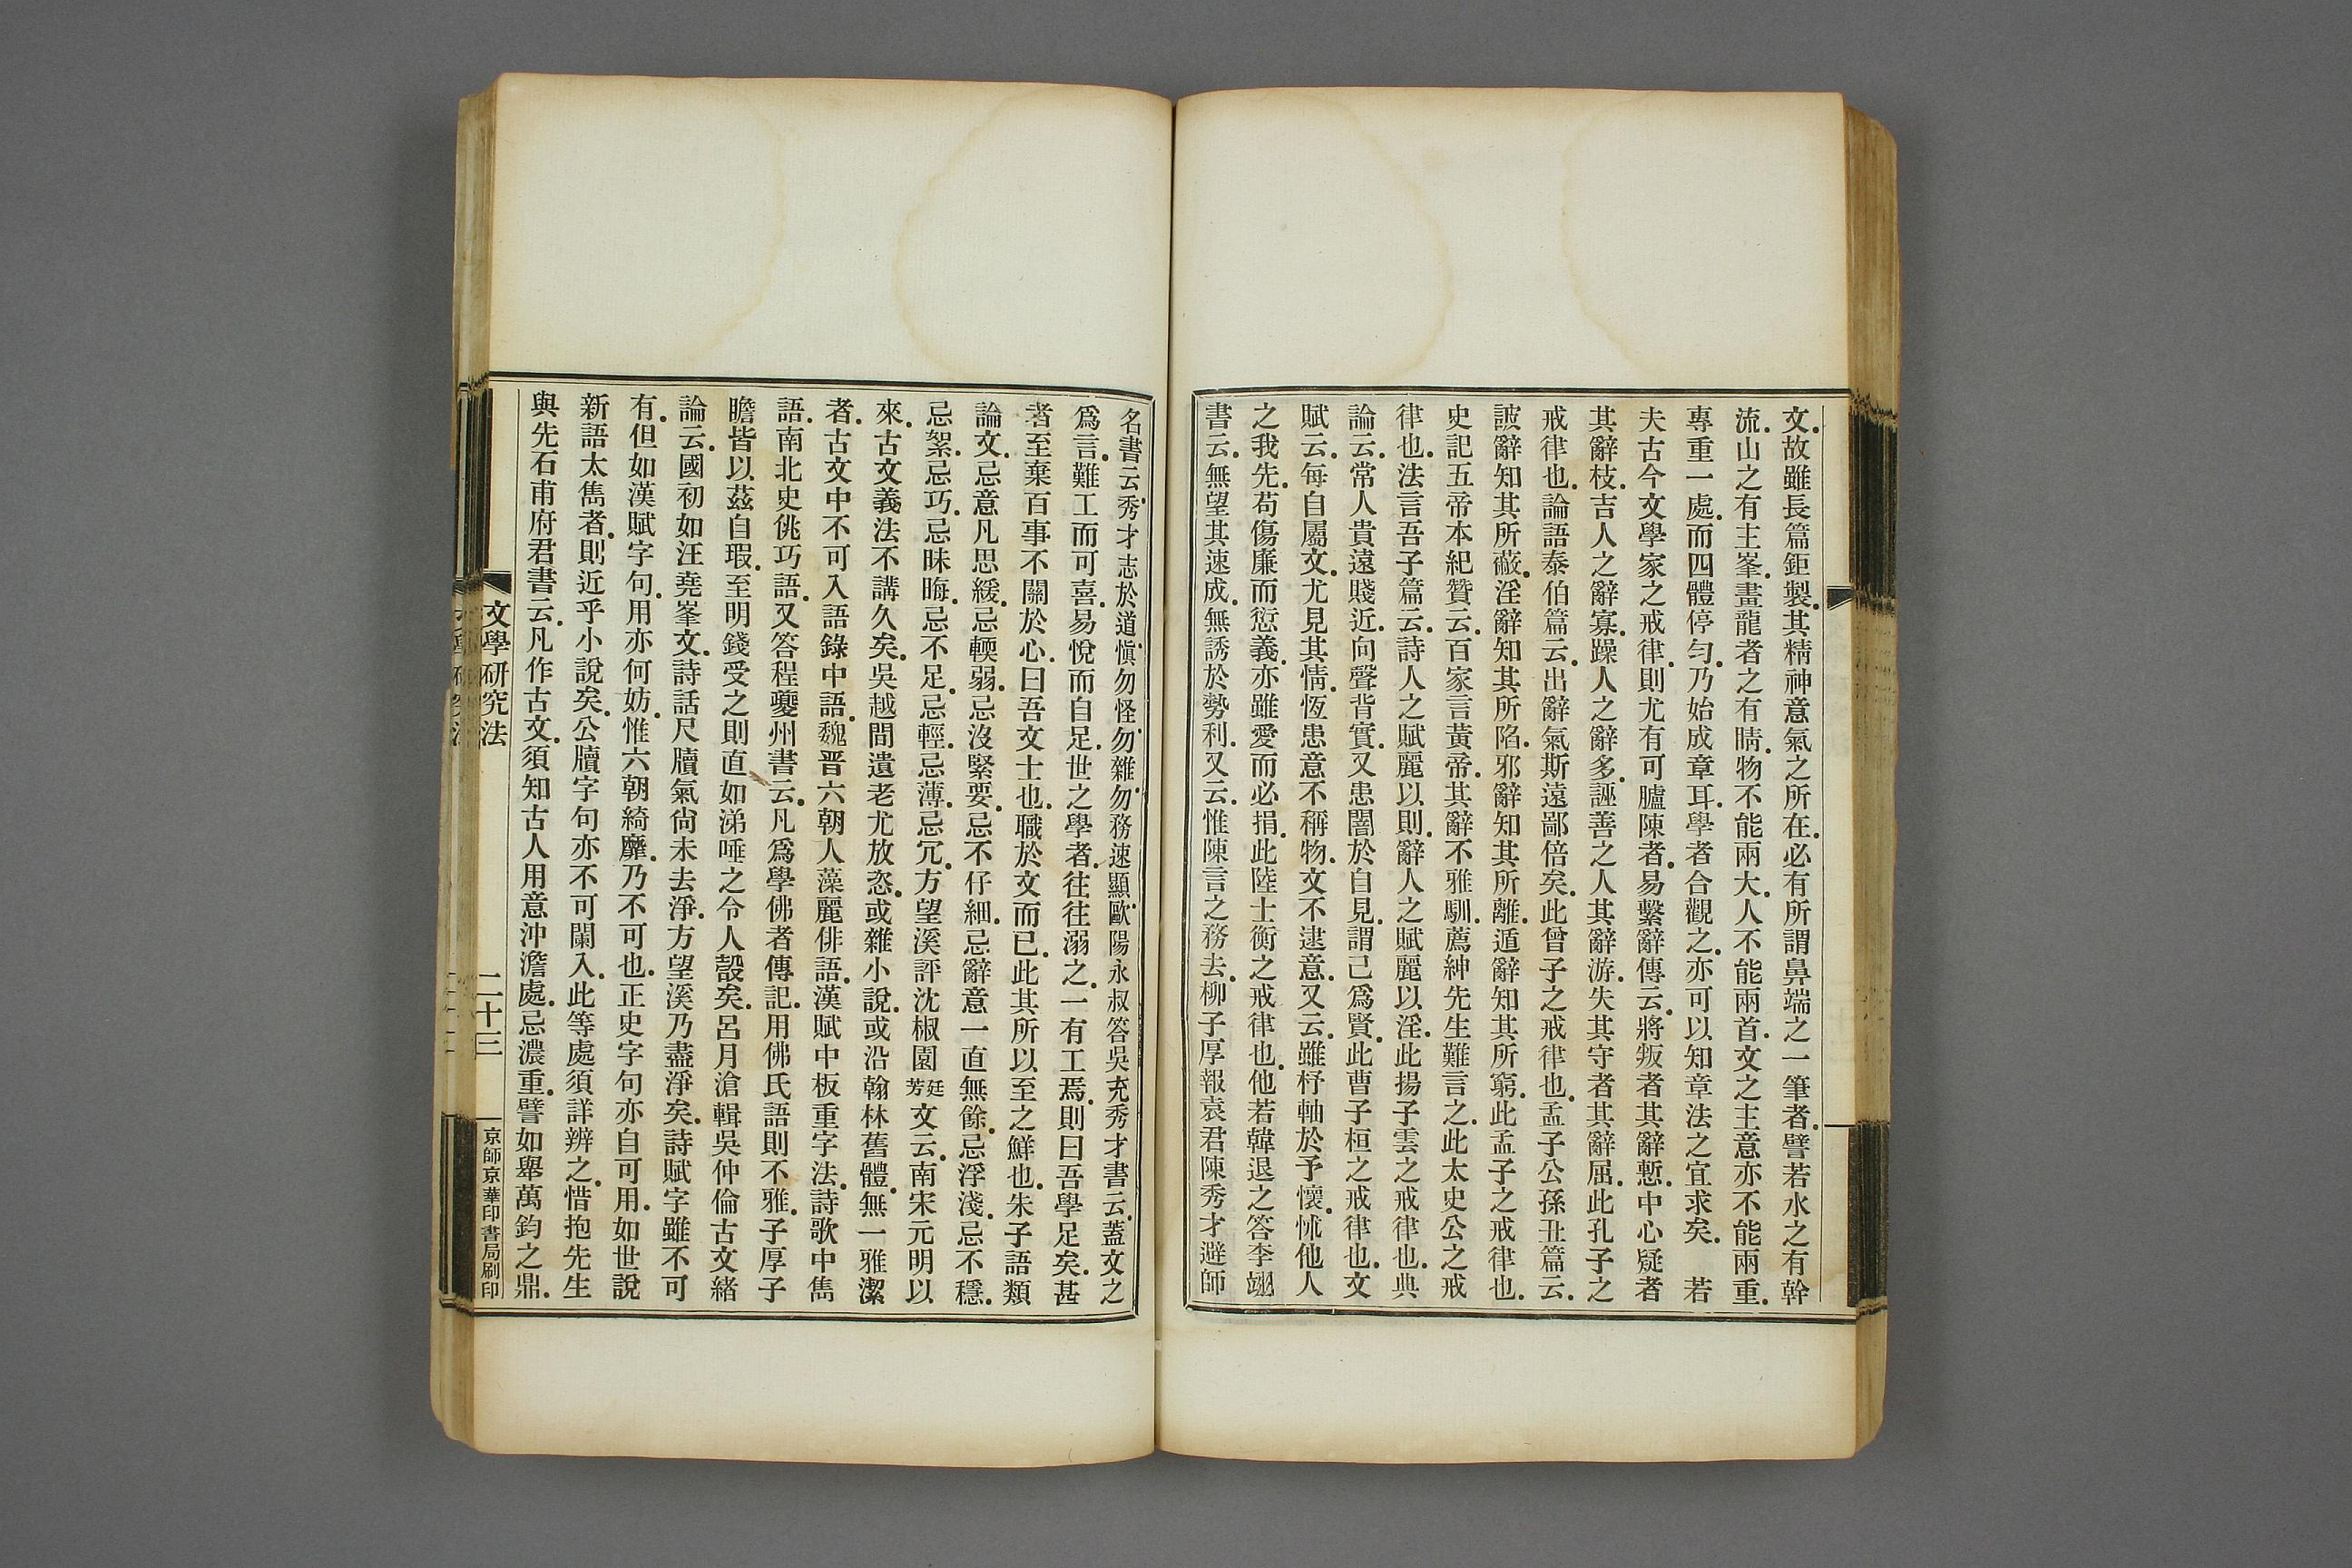 文.故雖長篇鉅製.其精神意氣之所在.必有所謂鼻端之一筆者.譬若水之有幹
流.山之有主峯.畫龍者之有睛.物不能兩大.人不能兩首.文之主意亦不能兩重.
專重一處.而四體停勻.乃始成章耳.學者合觀之.亦可以知章法之宜求矣.　若
夫古今文學家之戒律.則尤有可臚陳者.易繫辭傳云.將叛者其辭慙.中心疑者
其辭枝.吉人之辭寡.躁人之辭多.誣善之人其辭游.失其守者其辭屈.此孔子之
戒律也.論語泰伯篇云.出辭氣斯遠鄙倍矣.此曾子之戒律也.孟子公孫丑篇云.
詖辭知其所蔽.淫辭知其所陷.邪辭知其所離.遁辭知其所窮.此孟子之戒律也.
史記五帝本紀贊云.百家言黃帝.其辭不雅馴.薦紳先生難言之.此太史公之戒
律也.法言吾子篇云.詩人之賦麗以則.辭人之賦麗以淫.此揚子雲之戒律也.典
論云.常人貴遠賤近.向聲背實.又患闇於自見.謂己爲賢.此曹子桓之戒律也.文
賦云.每自屬文.尤見其情.恆患意不稱物.文不逮意.又云.雖杼軸於予懷.怵他人
之我先.苟傷廉而愆義.亦雖愛而必捐.此陸士衡之戒律也.他若韓退之答李翊
書云.無望其速成.無誘於勢利.又云.惟陳言之務去.柳子厚報袁君陳秀才避師
名書云.秀才志於道.愼勿怪.勿雜.勿務速顯.歐陽永叔答吳充秀才書云.蓋文之
爲言.難工而可喜.易悅而自足.世之學者.往往溺之.一有工焉.則曰吾學足矣.甚
者至棄百事不關於心.曰吾文士也.職於文而已.此其所以至之鮮也.朱子語類
論文.忌意凡思緩.忌輭弱.忌沒緊要.忌不仔細.忌辭意一直無餘.忌浮淺.忌不穩.
忌絮.忌巧.忌昧晦.忌不足.忌輕.忌薄.忌冗.方望溪評沈椒園廷芳文云.南宋元明以
來.古文義法不講久矣.吳越間遺老尤放恣.或雜小說.或沿翰林舊體.無一雅潔
者.古文中不可入語錄中語.魏晋六朝人藻麗俳語.漢賦中板重字法.詩歌中雋
語.南北史佻巧語.又答程夔州書云.凡爲學佛者傳記.用佛氏語則不雅.子厚子
瞻皆以茲自瑕.至明錢受之則直如涕唾之令人嗀矣.呂月滄輯吳仲倫古文緒
論云.國初如汪堯峯文.詩話尺牘氣尙未去淨.方望溪乃盡淨矣.詩賦字雖不可
有.但如漢賦字句.用亦何妨.惟六朝綺靡.乃不可也.正史字句亦自可用.如世說
新語太雋者.則近乎小說矣.公牘字句亦不可闌入.此等處須詳辨之.惜抱先生
與先石甫府君書云.凡作古文.須知古人用意沖澹處.忌濃重.譬如舉萬鈞之鼎.
文學研究法
二十三
京師京華印書局刷印